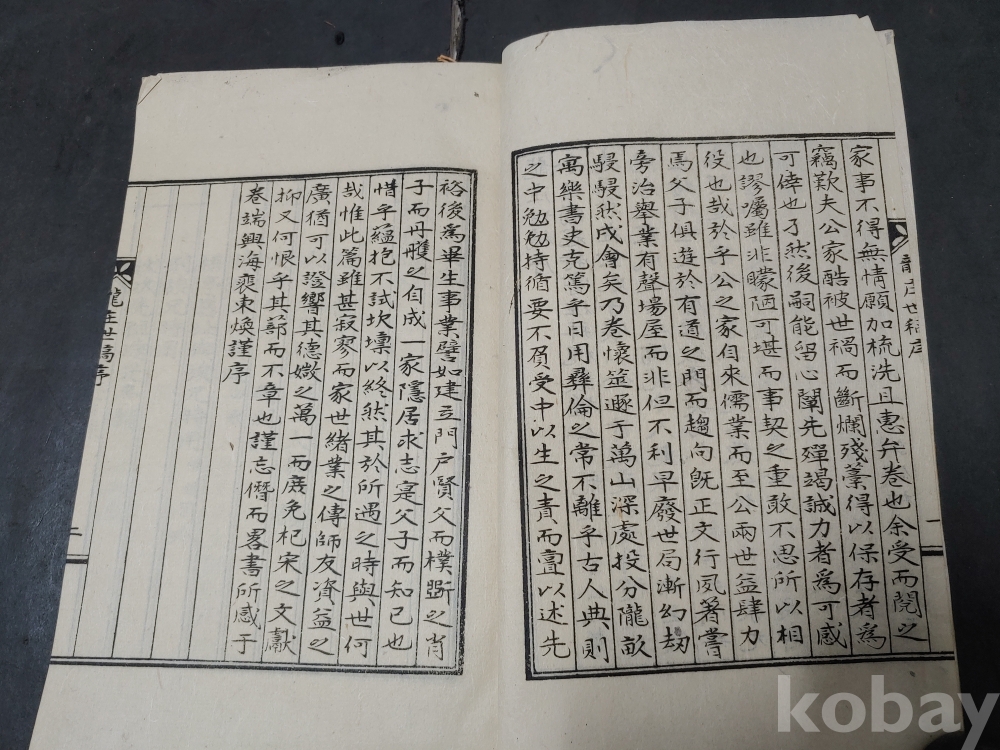 家事不得無情願加梳洗且惠弁卷也余受而閱之
竊歎夫公家酷被世禍而斷爛殘藁得以保存者爲
可倖也了然後嗣能留心闡先殫竭誠力者爲可感
也謬囑雖非矇陋可堪而事契之重敢不思所以相
役也哉於乎公之家自來儒業而至公兩世益肆力
馬父子俱遊於有道之門而趨向旣正文行夙著嘗
旁治擧業有聲場屋而非但不利早廢世局漸幻劫
駸駸然成會矣乃卷懷筮遯于萬山深處投分隴畝
寓樂書史克篤乎日用彛倫之常不離乎古人典則
之中勉勉持循要不負受中以生之責而亶以述先
裕後爲畢生事業譬如建立門戶賢父而樸斲之肖
子而丹雘之自成一家隱居求志寔父子而知己也
惜乎蘊抱不試坎壈以終然其於所遇之時與世何
哉惟此篇雖甚寂寥而家世緖業之傳師友資益之
廣猶可以證響其德媺之萬一而庶免杞宋之文獻
抑又何恨乎其鄙而不章也謹忘僭而畧書所感于
卷端興海裵東煥謹序
龍庄世稿序
一
龍庄世稿序
二
kobay